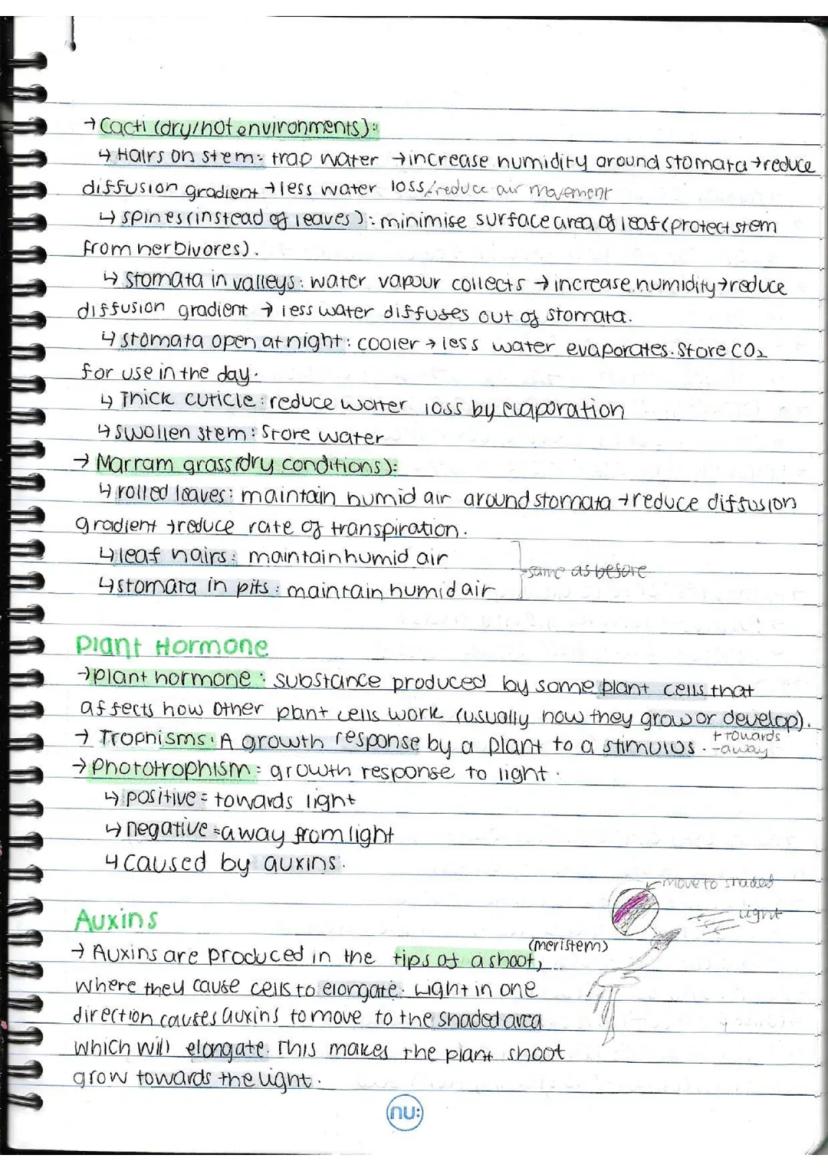 → Cacti (dry/hot environments):
↳ Hairs on stem: trap water → increase humidity around stomata → reduce
diffusion gradient → less water loss/reduce air movement
↳ spines (instead of leaves): minimise surface area of leaf (protect stem
from herbivores).
↳ stomata in valleys: water vapour collects → increase humidity → reduce
diffusion gradient → less water diffuses out of stomata.
↳ stomata open at night: cooler → less water evaporates. Store CO₂
for use in the day.
↳ Thick cuticle: reduce water loss by evaporation
↳ swollen stem: store water
→ Marram grass (dry conditions):
↳ rolled leaves: maintain humid air around stomata → reduce diffusion
gradient → reduce rate of transpiration.
↳ leaf hairs: maintain humid air
↳ stomata in pits: maintain humid air
- same as before
Plant Hormone
→ Plant hormone: substance produced by some plant cells that
affects how other plant cells work (usually how they grow or develop).
→ Trophisms: A growth response by a plant to a stimulus. + towards
- away
→ Phototrophism: growth response to light.
↳ positive = towards light
↳ negative = away from light
↳ caused by auxins.
move to shaded
light
Auxins
→ Auxins are produced in the tips of a shoot, (meristem)
where they cause cells to elongate. Light in one
direction causes auxins to move to the shaded area
which will elongate. This makes the plant shoot
grow towards the light.
nu: